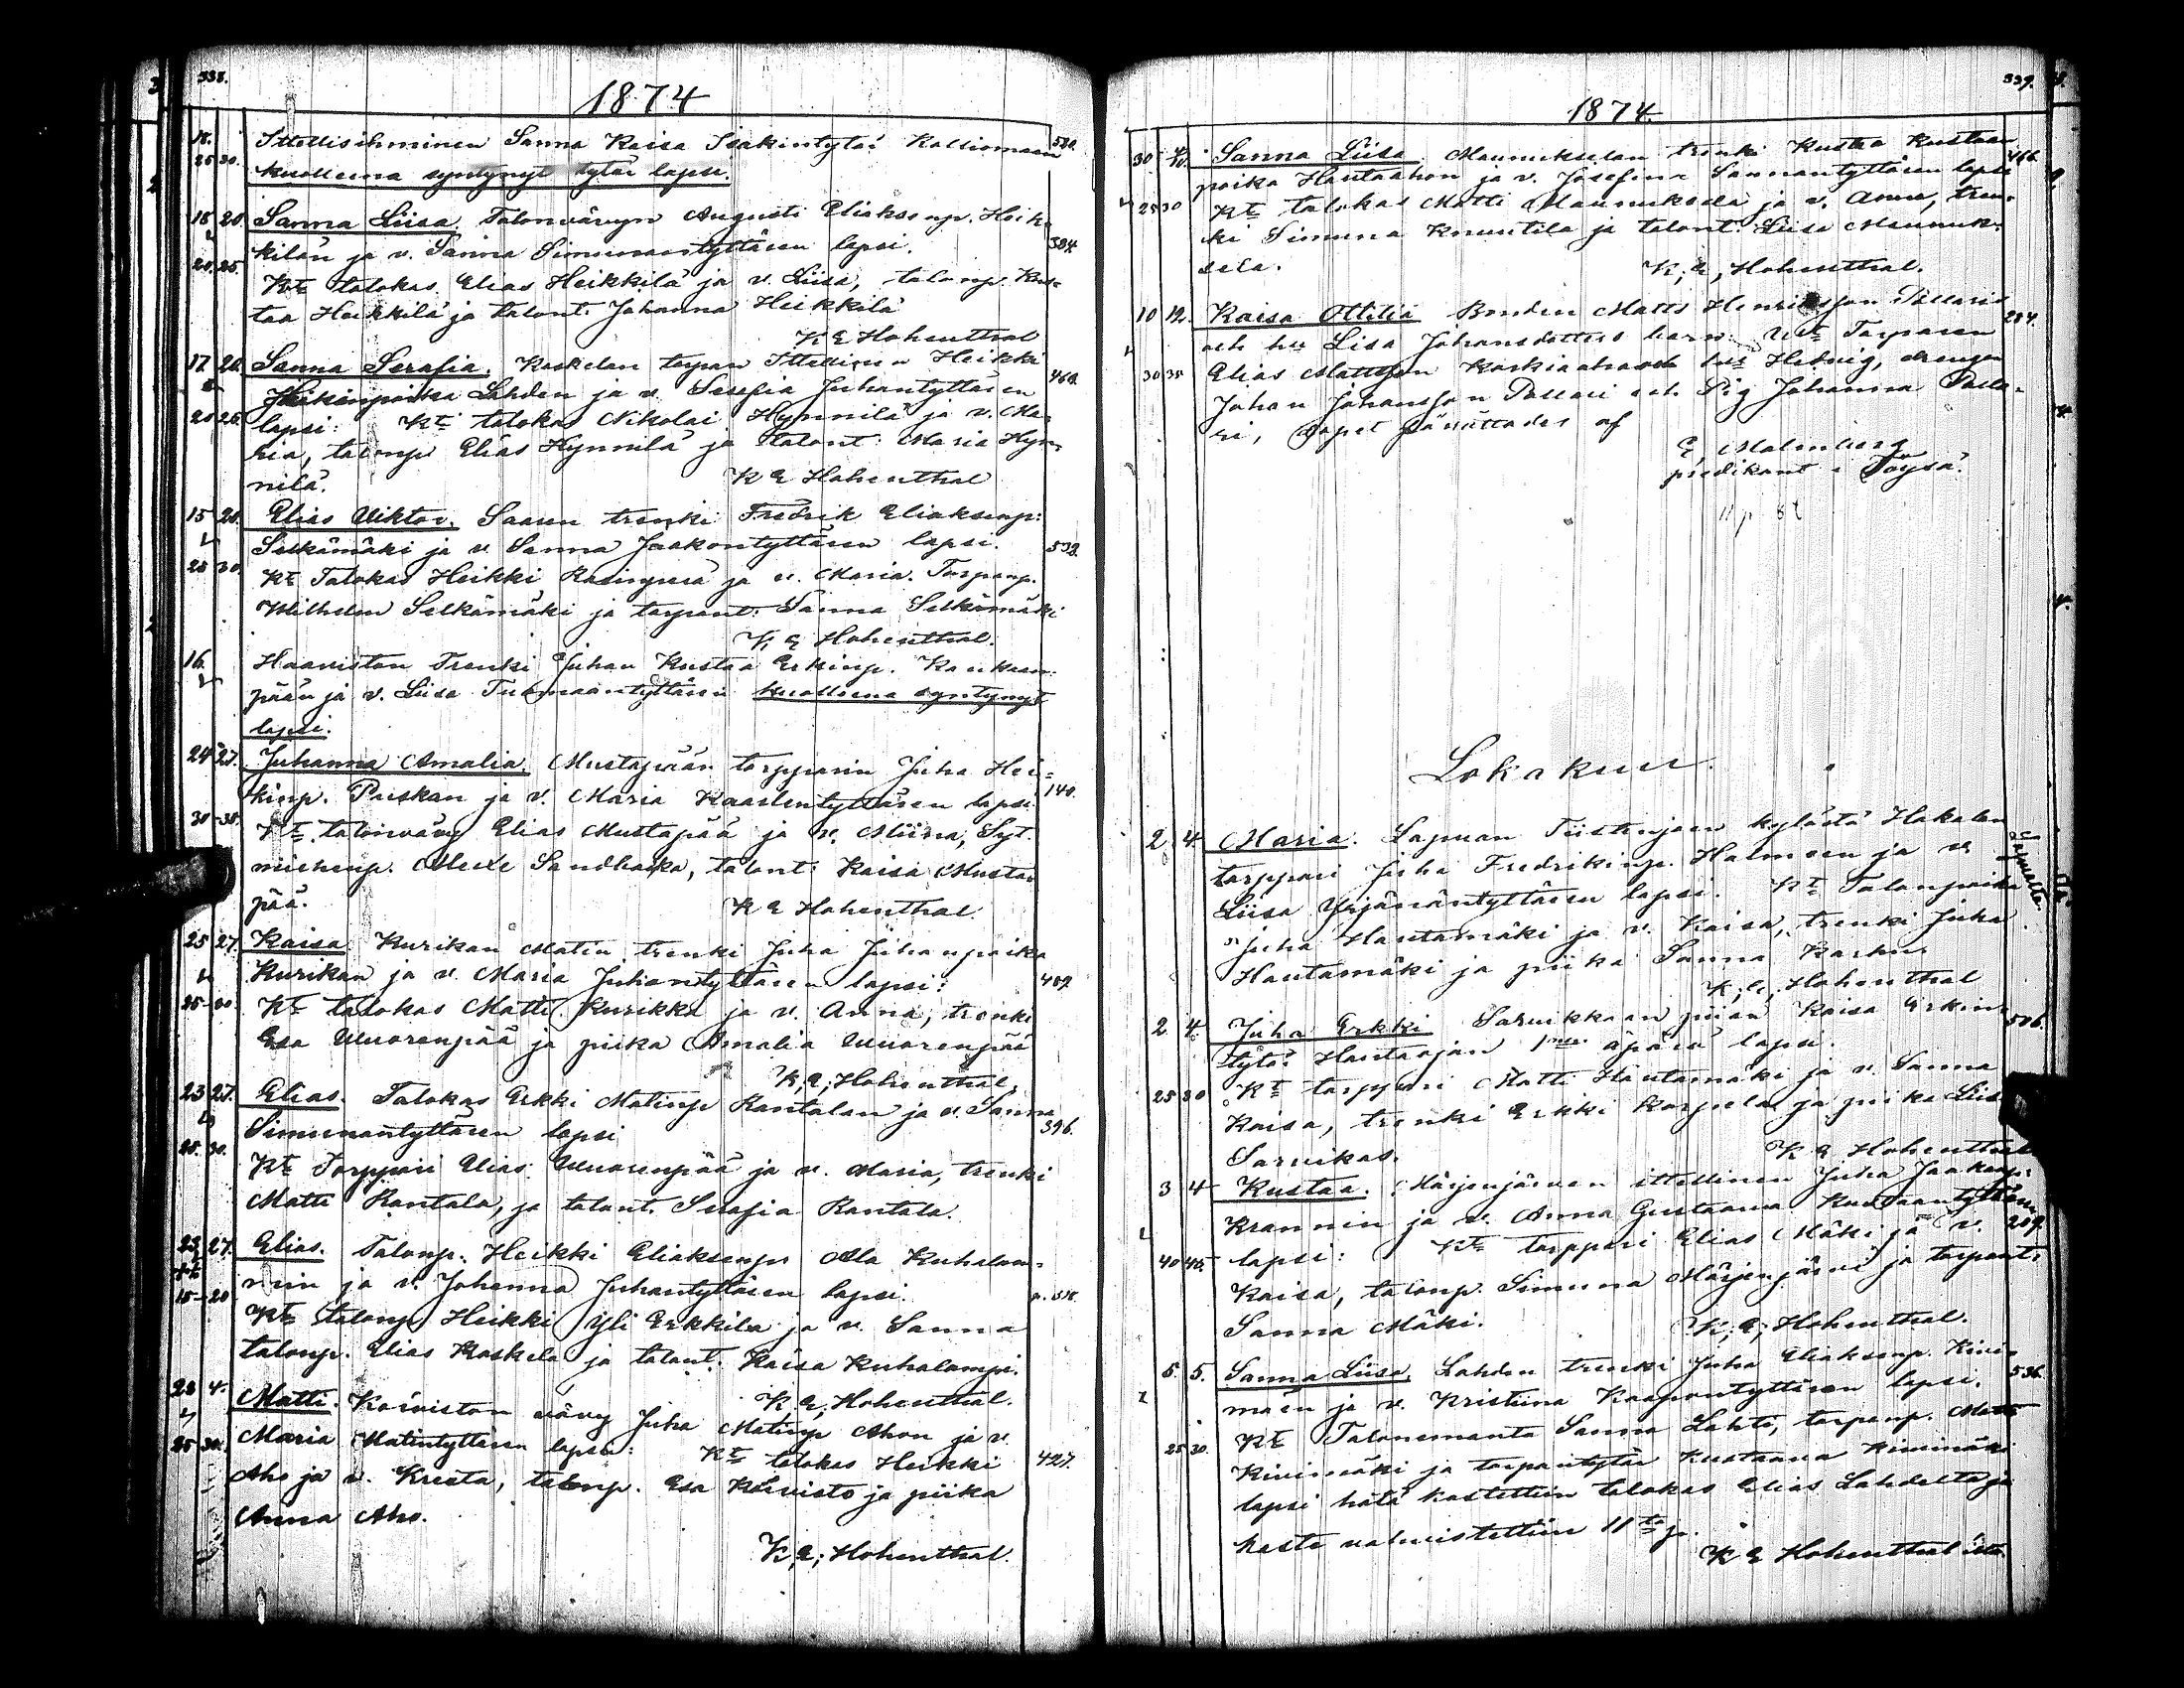 338.
1874
18. Ittellisihminen Sanna Kaisa Isakintytär Kalliomaan 520.
25 30. kuollena syntynyt tytär lapsi.
18 20. Sanna Liisa. Talonvävyn Augusti Eliaksenp. Heik-
kilän ja v. Sanna Simunantyttären lapsi. 384.
20. 25. Kt talokas Elias Heikkilä ja v. Liisa, talonp. Kus-
taa Heikkilä ja talont. Johanna Heikkilä
K E Hohenthal
17 20. Sanna Serafia. Koskelan torpan Ittellisen Heikki
Heikinpoika Lahden ja v. Serefia Juhantyttären 460.
20 25. lapsi: Kt talokas Nikolai Hynnilä ja v. Ma-
ria, talonp Elias Hynnilä ja talont: Maria Hyn-
nilä. K E Hohenthal
15 20. Elias Viktor. Saaren trenki Fredrik Eliaksenp:
Selkämäki ja v. Sanna Jaakontyttären lapsi. 532.
25 30. Kt Talokas Heikki ja v. Maria. Torpanp.
Wilhelm Selkämäki ja torpant. Sanna Selkämäki
K E Hohenthal.
16. Haaviston Trenki Juhan Kustaa Erkinp. Kankaan-
pään ja v. Liisa Tuomaantyttären kuollena syntynyt
lapsi.
24 27. Juhanna Amalia. Mustapään torpparin Juha Hei-
kinp. Puskan ja v. Maria Kaarlentyttären lapsi 140.
30-35. Kt talonvävy Elias Mustapää ja v. Miina, Syt.
miehenp. Sandbacka, talont: Kaisa Musta
pää. K E Hohenthal
25 27. Kaisa Kurikan Matin trenki Juha Juhanpoika
Kurikan ja v. Maria Juhantyttären lapsi: 459.
25-30. Kt talokas Matti Kurikka ja v. Anna, trenki
Esa Wuorenpää ja piika Amalia Wuorenpää
K, E; Hohenthal,
23 27. Elias. Talokas Erkki Matinp Rantalan ja v. Sanna
Simunantyttären lapsi 396.
25. 30. Kt Torppari Elias Wuorenpää ja v. Maria, trenki
Matti Rantala, ja talont. Serafia Rantala.
23 27. Elias. Talonp. Heikki Eliaksenp Ala Kuhalam-
min ja v. Johanna Juhantyttären lapsi.
15-20 Kt talonp Heikki Yli Erkkila ja v. Sanna
talonp. Elias Koskela ja talont. Kaisa Kuhalampi.
K. E, Hohenthal.
28 4. Matti. Koiviston vävy Juha Matinp Ahon ja v.
Maria Matintyttären lapsi: Kt talokas Heikki 427.
25-30. Aho ja v. Kreeta, talonp. Esa Koivisto ja piika
Anna Aho.
K, E; Hohenthal.
339.
1874.
30 Sanna Liisa Maunukselan trenki Kustaa Kustaan
poika Hautaahon ja v. Josefina Sannantyttären lapsi 466.
25 30 Kt talokas Matti Maunuksela ja v. Anna, tren-
ki Simuna Knuutila ja talont. Liisa Maunuk-
sela. K, E, Hohenthal.
10 12. Kaisa Ottilia Bonden Matts Henriksson Pallarin
och hu Lisa Johansdotters barn. Wt Torparen 284.
30 35 Elias Mattsson Koskiaho och hus Hedvig, drengen
Johan Johansson Pallari och Pig Johanna Palla-
ri, dopet förrättades af
E, Malmberg
predikant i Töysä.
Lokakuu.
2 4 Maria. Lapuan Tiistenjoen kylästä Hakalan
torppari Juha Fredrikinp. Halmeen ja v. Lapualta.
Liisa Yrjänäntyttären lapsi. Kt Talonpoika
Juha Hautamäki ja v. Kaisa, trenki Juha
Hautamäki ja piika Sanna Karhu
K, E, Hohenthal
2 4. Juha Erkki Sarvikkaan piian Kaisa Erkin- 506.
tytär Hautaojan 1nen äpärä lapsi.
25 30 Kt torppari Matti Hautamäki ja v. Sanna
Kaisa, trenki Erkki Korpela ja piika Liisa
Sarvikas. K E Hohenthal
3 4 Kustaa. Märjenjärven ittellinen Juha Jaakonp.
Krannin ja v. Anna Gustaava Kustaantyttären
40 45. lapsi: Kt torppari Elias Mäki ja v. 209.
Kaisa, talonp. Simuna Märjenjärvi ja torpant:
Sanna Mäki. K, E, Hohenthal.
5. 5. Sanna Liisa. Lahden trenki Juha Eliaksenp. Kivi- 536.
mäen ja v. Kristiina Kaapontyttären lapsi.
25 30. Kt Talonemanta Sanna Lahti, torpanp. Matti
Kivimäki ja torpantytär Kustaava Kivimäki
lapsi hätä kastettiin talokas Elias Lahdelta ja
kaste vahvistettiin 11ta p.
K E Hohenthal